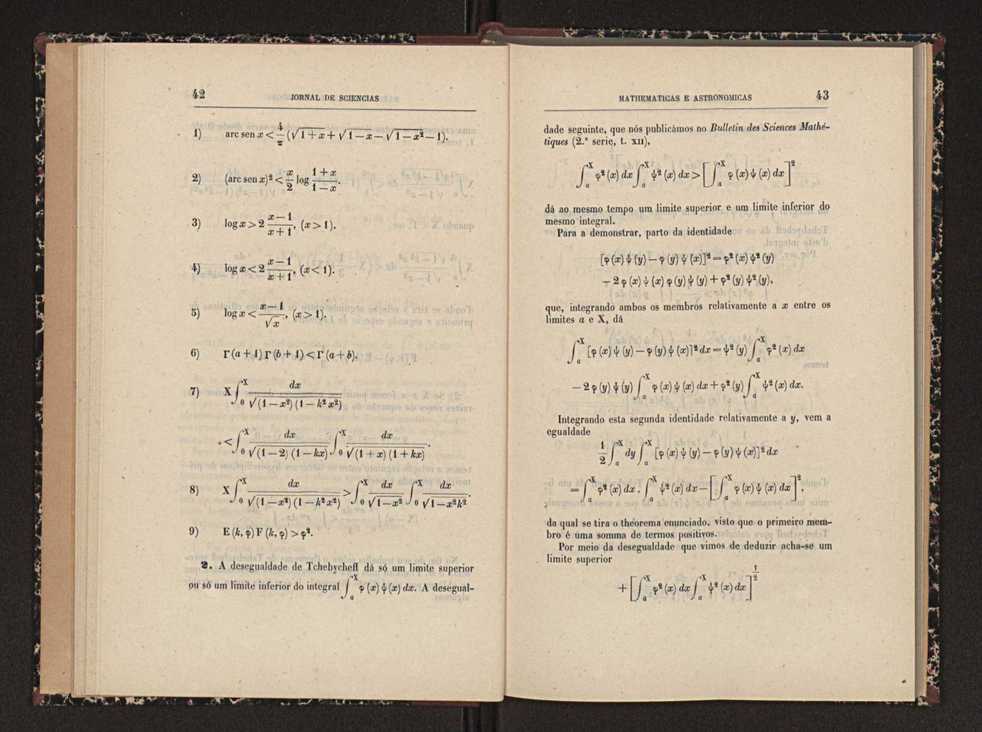 42
JORNAL DE SCIENCIAS
1) arc sen x < 4/π (√(1+x) + √(1−x) − √(1−x²) − 1).
2) (arc sen x)² < x/2 log (1+x)/(1−x).
3) log x > 2 (x−1)/(x+1), (x > 1).
4) log x < 2 (x−1)/(x+1), (x < 1).
5) log x < (x−1)/√x, (x > 1).
6) Γ(a+1) Γ(b+1) < Γ(a+b).
7) X ∫₀^X dx/√((1−x²)(1−k²x²))
< ∫₀^X dx/√((1−2)(1−kx)) ∫₀^X dx/√((1+x)(1+kx)).
8) X ∫₀^X dx/√((1−x²)(1−k²x²)) > ∫₀^X dx/√(1−x²) ∫₀^X dx/√(1−x²k²).
9) E(k, φ) F(k, φ) > φ².
2. A desegualdade de Tchebycheff dá só um limite superior
ou só um limite inferior do integral ∫ₐ^X φ(x) ψ(x) dx. A desegual-
MATHEMATICAS E ASTRONOMICAS
43
dade seguinte, que nós publicámos no Bulletin des Sciences Mathé-
tiques (2.ª serie, t. XII),
∫ₐ^X φ²(x) dx ∫ₐ^X ψ²(x) dx > [∫ₐ^X φ(x) ψ(x) dx]²
dá ao mesmo tempo um limite superior e um limite inferior do
mesmo integral.
Para a demonstrar, parto da identidade
[φ(x) ψ(y) − φ(y) ψ(x)]² = φ²(x) ψ²(y)
− 2 φ(x) ψ(x) φ(y) ψ(y) + φ²(y) ψ²(y),
que, integrando ambos os membros relativamente a x entre os
limites a e X, dá
∫ₐ^X [φ(x) ψ(y) − φ(y) ψ(x)]² dx = ψ²(y) ∫ₐ^X φ²(x) dx
− 2 φ(y) ψ(y) ∫ₐ^X φ(x) ψ(x) dx + φ²(y) ∫ₐ^X ψ²(x) dx.
Integrando esta segunda identidade relativamente a y, vem a
egualdade
1/2 ∫ₐ^X dy ∫ₐ^X [φ(x) ψ(y) − φ(y) ψ(x)]² dx
= ∫ₐ^X φ²(x) dx . ∫ₐ^X ψ²(x) dx − [∫ₐ^X φ(x) ψ(x) dx]²,
da qual se tira o theorema enunciado, visto que o primeiro mem-
bro é uma somma de termos positivos.
Por meio da desegualdade que vimos de deduzir acha-se um
limite superior
+ [∫ₐ^X φ²(x) dx ∫ₐ^X ψ²(x) dx]^(1/2)